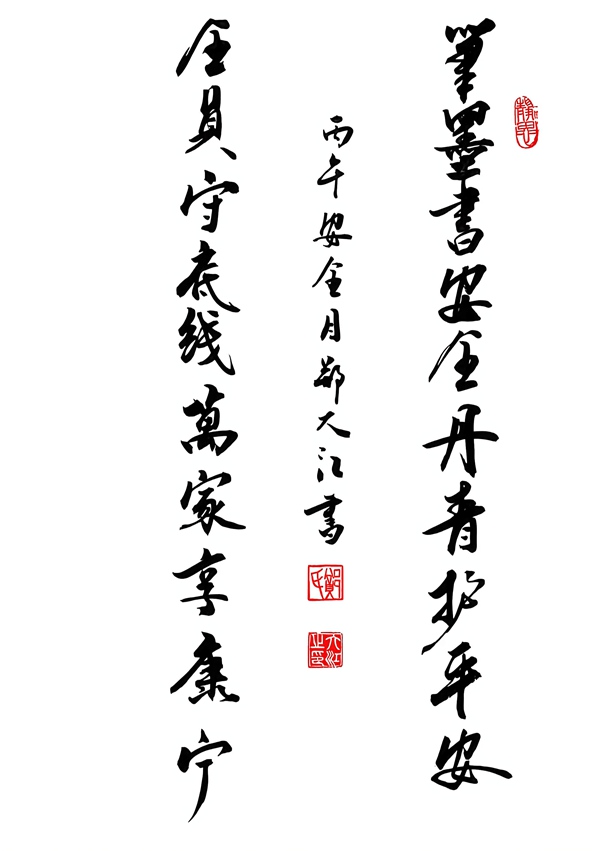 筆墨書安全丹青护平安
丙午安全月鄭大江書
鄭氏
大江之印
全員守底线萬家享康宁